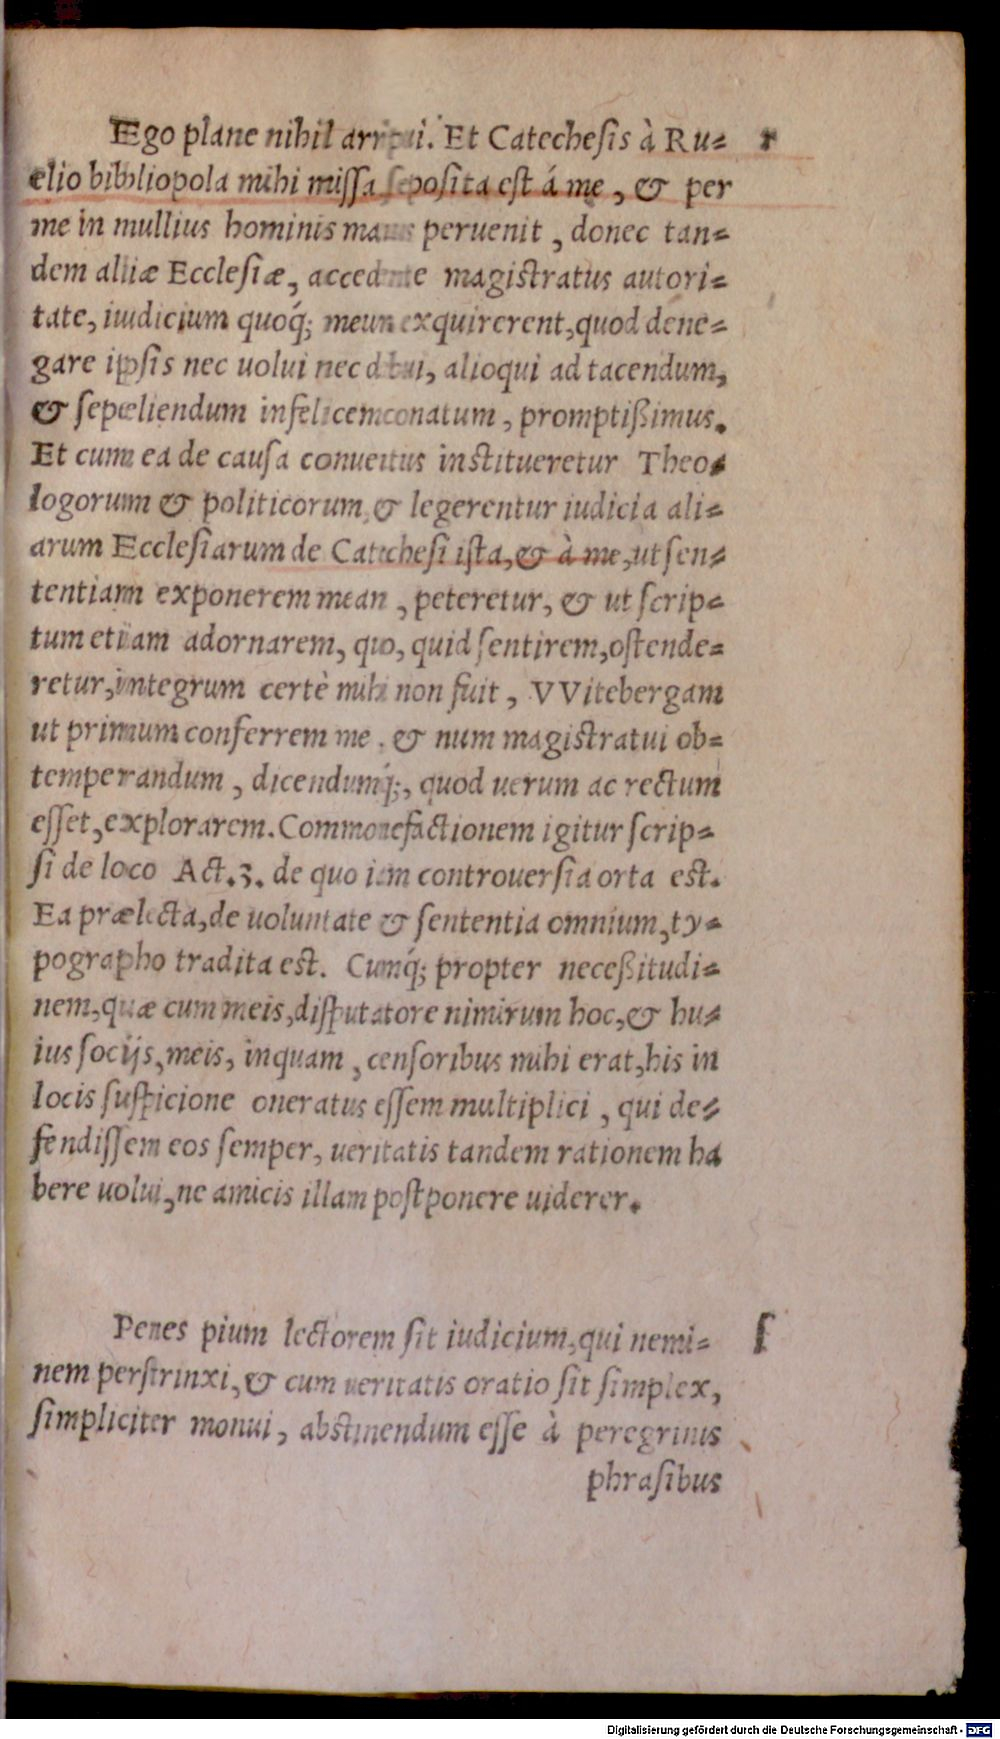 Ego plane nihil arripui. Et Catechesis à Ru= r
elio bibliopola mihi missa seposita est á me, & per
me in nullius hominis manus peruenit, donec tan=
dem aliæ Ecclesiæ, accedente magistratus autori=
tate, iudicium quoq́; meum exquirerent, quod dene=
gare ipsis nec uolui nec debui, alioqui ad tacendum,
& sepeliendum infelicem conatum, promptißimus.
Et cum ea de causa conuentus institueretur Theo=
logorum & politicorum, & legerentur iudicia ali=
arum Ecclesiarum de Catechesi ista, & à me, ut sen=
tentiam exponerem mean, peteretur, & ut scrip=
tum etiam adornarem, quo, quid sentirem, ostende=
retur, integrum certè mihi non fuit, VVitebergam
ut primum conferrem me, & num magistratui ob=
temperandum, dicendumq́;, quod uerum ac rectum
esset, explorarem. Commonefactionem igitur scrip=
si de loco Act. 3. de quo iam controuersia orta est.
Ea prælecta, de uoluntate & sententia omnium, ty=
pographo tradita est. Cumq́; propter neceßitudi=
nem, quæ cum meis, disputatore nimirum hoc, & hu=
ius socijs, meis, inquam, censoribus mihi erat, his in
locis suspicione oneratus essem multiplici, qui de=
fendissem eos semper, ueritatis tandem rationem ha
bere uolui, ne amicis illam postponere uiderer.
Penes pium lectorem sit iudicium, qui nemi= ſ
nem perstrinxi, & cum ueritatis oratio sit simplex,
simpliciter monui, abstinendum esse à peregrinis
phrasibus
Digitalisierung gefördert durch die Deutsche Forschungsgemeinschaft - DFG